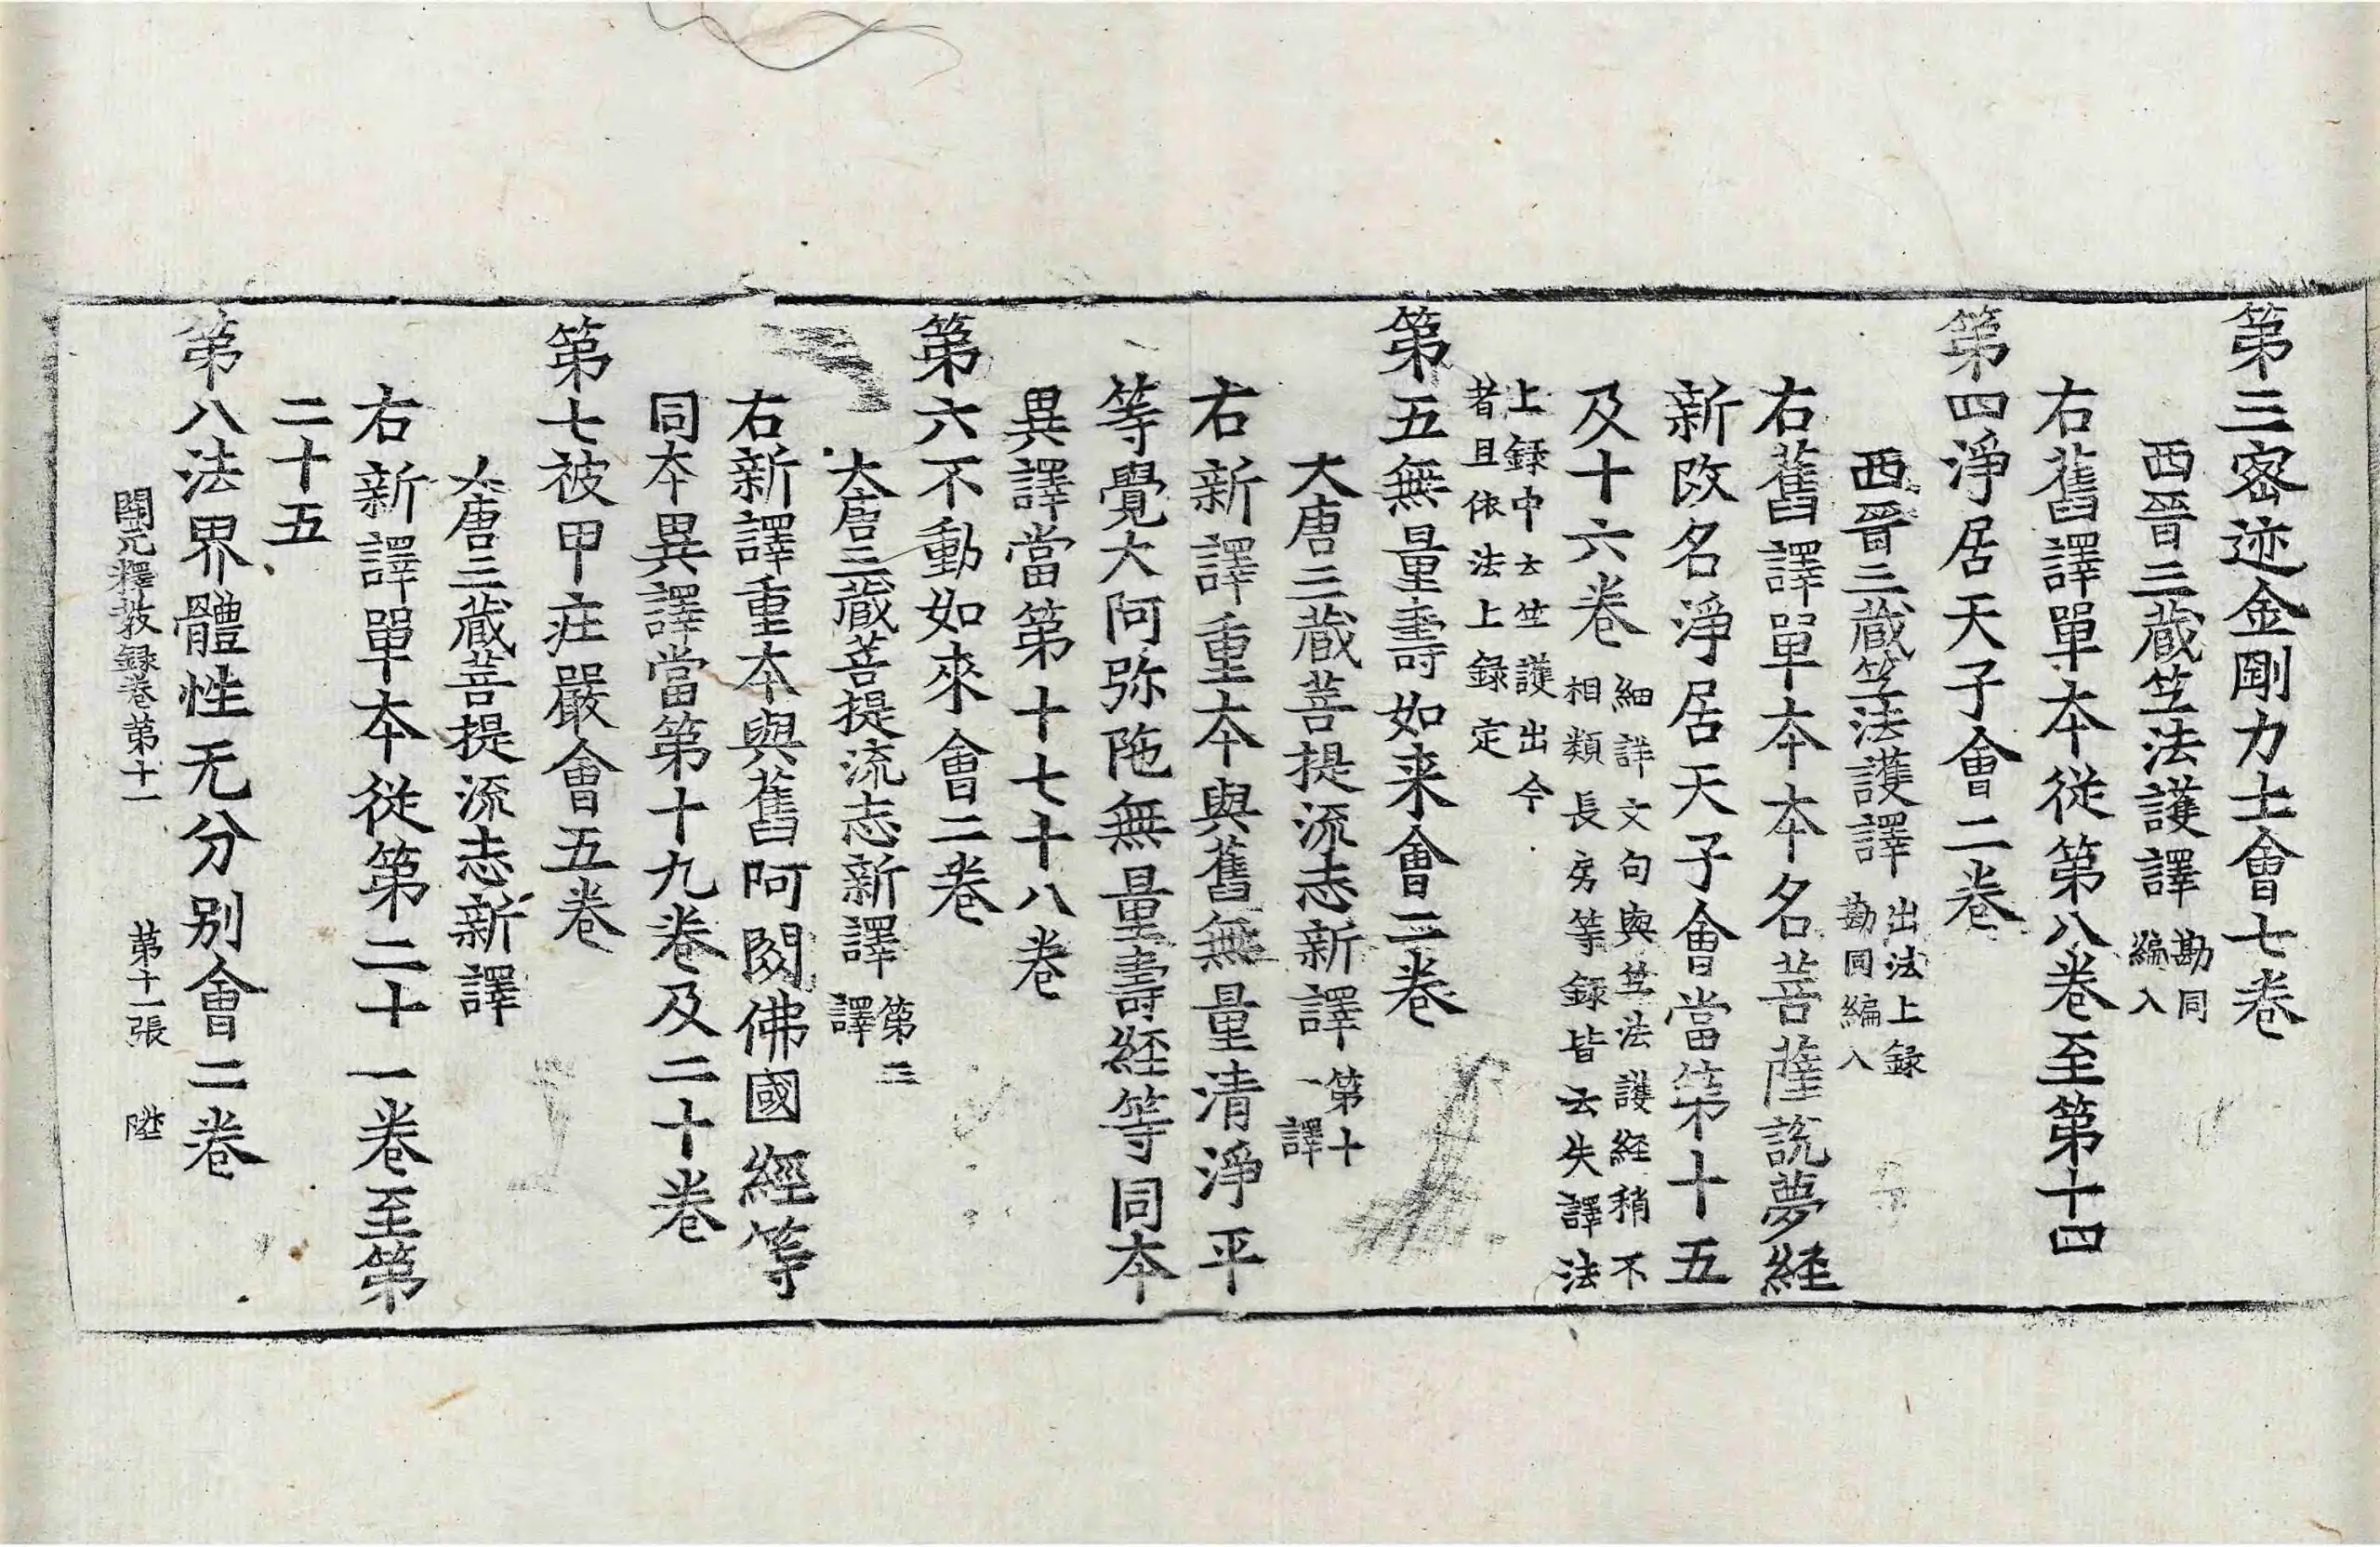 第三密迹金剛力士會七卷
西晉三藏竺法護譯勘同編入
右舊譯單本從第八卷至第十四
第四淨居天子會二卷
西晉三藏竺法護譯出法上錄勘同編入
右舊譯單本本名菩薩說夢經
新改名淨居天子會當第十五
及十六卷細詳文句與竺法護經稍不相類長房等録皆云失譯法
上録中云竺護出今者且依法上録定
第五無量壽如来會二卷
大唐三藏菩提流志新譯第十一譯
右新譯重本與舊無量清淨平
等覺大阿弥陁無量壽経等同本
異譯當第十七十八卷
第六不動如來會二卷
大唐三藏菩提流志新譯第三譯
右新譯重本與舊阿閦佛國經等
同本異譯當第十九卷及二十卷
第七被甲荘嚴會五卷
大唐三藏菩提流志新譯
右新譯單本從第二十一卷至第
二十五
第八法界體性无分别會二卷
開元釋教録卷第十一 第十一張 陞